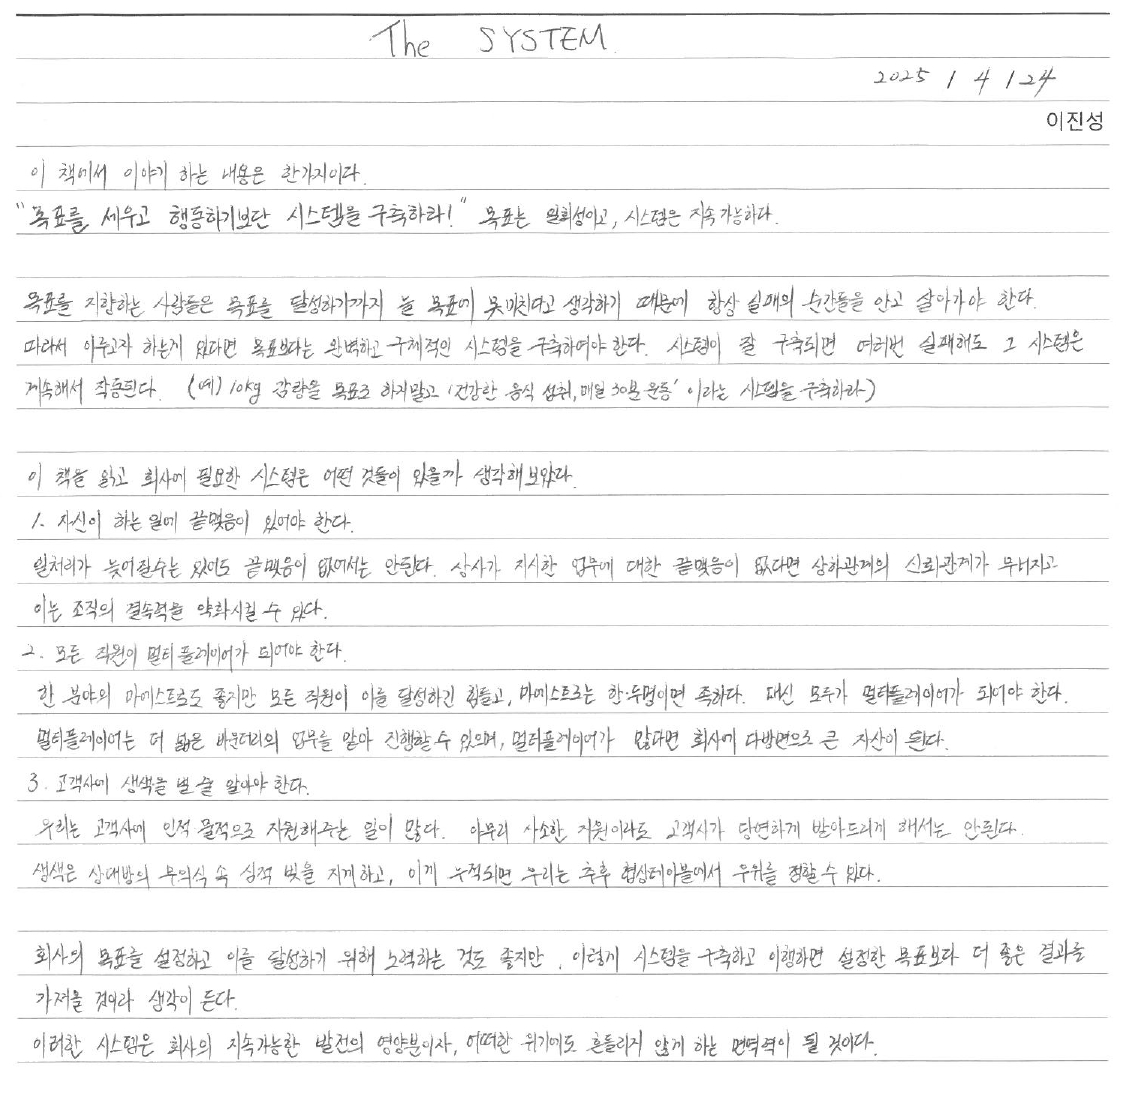 The SYSTEM.
2025 / 4 / 24
이진성
이 책에서 이야기 하는 내용은 한가지이다.
"목표를 세우고 행동하기보단 시스템을 구축하라!" 목표는 일회성이고, 시스템은 지속가능하다.
목표를 지향하는 사람들은 목표를 달성하기까지 늘 목표에 못미친다고 생각하기 때문에 항상 실패의 순간들을 안고 살아가야 한다.
따라서 이루고자 하는게 있다면 목표보다는 완벽하고 구체적인 시스템을 구축하여야한다. 시스템이 잘 구축되면 여러번 실패해도 그 시스템은
계속해서 작동된다. (예) 10kg 감량을 목표로 하지말고 '건강한 음식 섭취, 매일 30분 운동' 이라는 시스템을 구축하라)
이 책을 읽고 회사에 필요한 시스템은 어떤 것들이 있을까 생각해보았다.
1. 자신이 하는 일에 끝맺음이 있어야 한다.
일처리가 늦어질수는 있어도 끝맺음이 없어서는 안된다. 상사가 지시한 업무에 대한 끝맺음이 없다면 상하관계의 신뢰관계가 무너지고
이는 조직의 결속력을 약화시킬 수 있다.
2. 모든 직원이 멀티플레이어가 되어야 한다.
한 분야의 마에스트로도 좋지만 모든 직원이 이를 달성하긴 힘들고, 마에스트로는 한·두명이면 족하다. 대신 모두가 멀티플레이어가 되어야 한다.
멀티플레이어는 더 넓은 바운더리의 업무를 맡아 진행할 수 있으며, 멀티플레이어가 많다면 회사에 다방면으로 큰 자산이 된다.
3. 고객사에 생색을 낼 줄 알아야 한다.
우리는 고객사에 인적 물적으로 지원해주는 일이 많다. 아무리 사소한 지원이라도 고객사가 당연하게 받아드리게 해서는 안된다.
생색은 상대방의 무의식 속 심적 빚을 지게하고, 이게 누적되면 우리는 추후 협상테이블에서 우위를 점할 수 있다.
회사의 목표를 설정하고 이를 달성하기 위해 노력하는 것도 좋지만, 이렇게 시스템을 구축하고 이행하면 설정한 목표보다 더 좋은 결과를
가져올 것이라 생각이 든다.
이러한 시스템은 회사의 지속가능한 발전의 영양분이자, 어떠한 위기에도 흔들리지 않게 하는 면역력이 될 것이다.